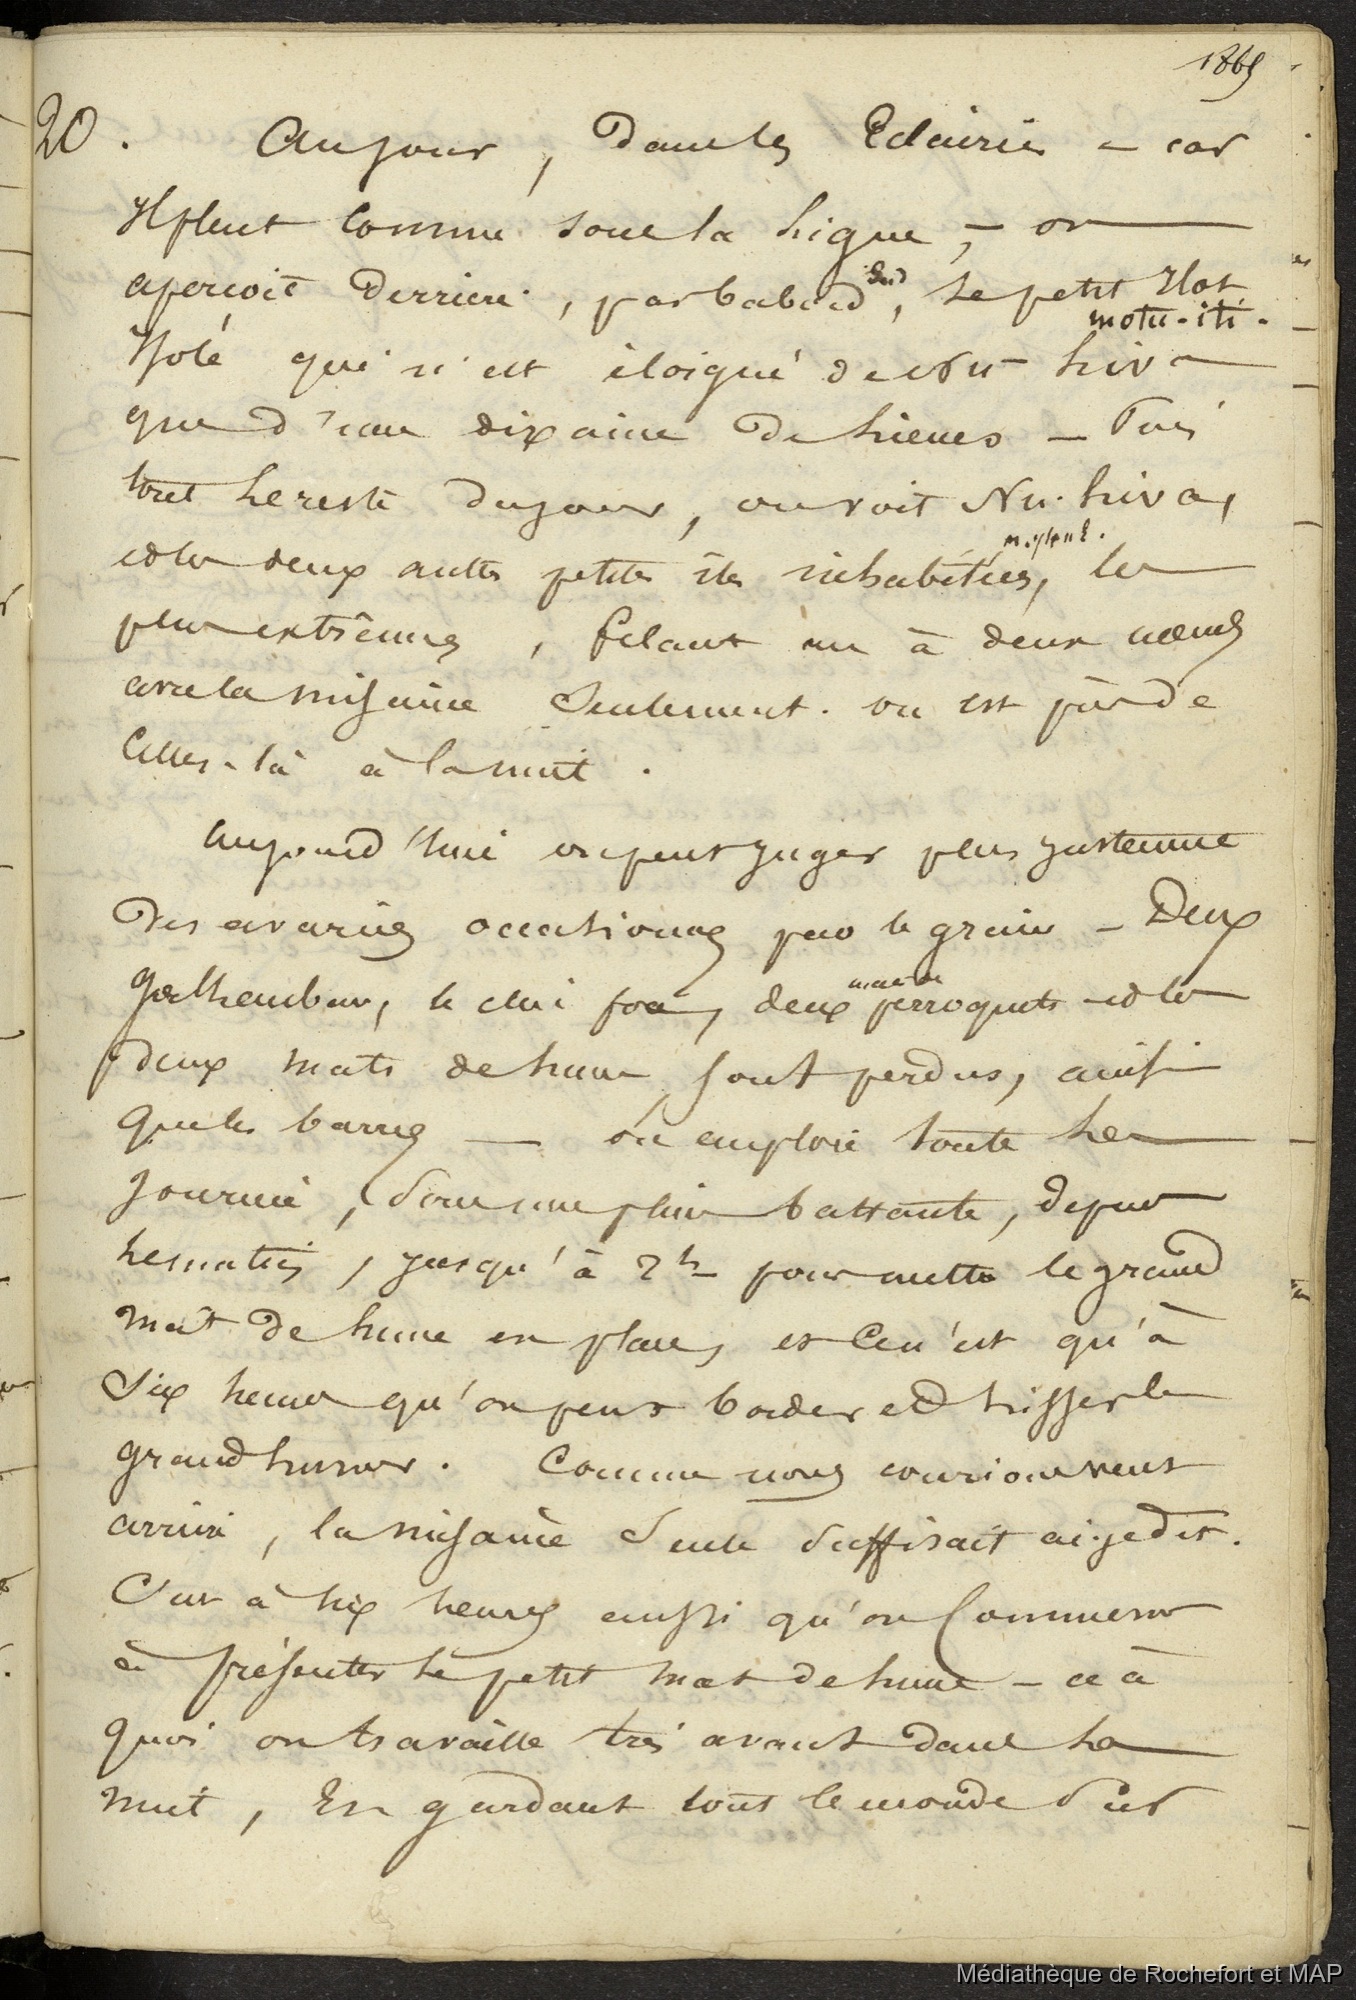 1865
20. Au jour, dans les Eclaircies – car
Il pleut comme sous la ligne, – on
aperçoit derriere, par babord Sud, le petit Ilot
motu-iti.
Isolé qui n'est éloigné de Nu-hiva
que d'une dixaine de lieues – Puis
tout le reste du jour, on voit Nu-hiva,
et les deux autres petites iles inhabitées, les
plus extrêmes, filant un à deux nœuds
avec la misaine Seulement. on est près de
Celles-là à la nuit.
Aujourd'hui on peut juger plus justement
des avaries occasionnes par le grain – Deux
Galhaubans, le clin foc, deux mats de perroquets et les
deux mats de hune sont perdus, ainsi
que les barres — on emploie toute la
journée, Sous une pluie battante, depuis
le matin, jusqu'à 2h pour mettre le grand
mât de hune en place, et Ce n'est qu'à
Six heures qu'on peut border et hisser le
grand hunier. Comme nous courions vent
arrière, la misaine Seule Suffisait ai-je dit.
C'est à Six heures aussi qu'on Commence
à présenter le petit mat de hune – ce à
quoi on travaille très avant dans la
nuit, En gardant tout le monde Sur
Médiathèque de Rochefort et MAP